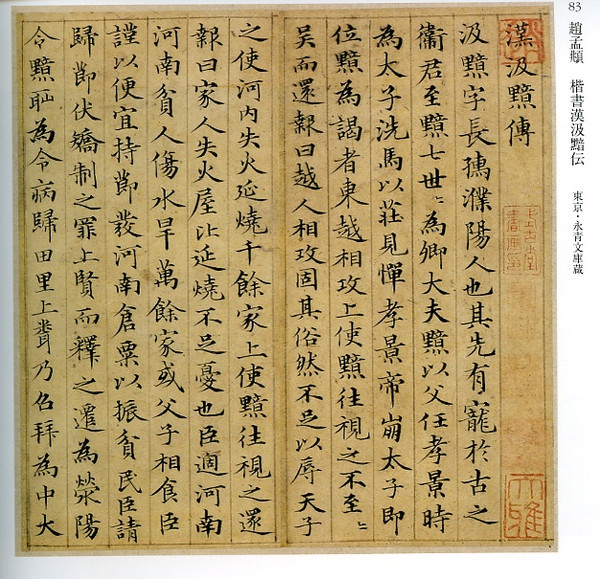 83 趙孟頫 楷書漢汲黯伝 東京・永青文庫蔵
漢汲黯傳
汲黯字長孺濮陽人也其先有寵於古之
衛君至黯七世〻為卿大夫黯以父任孝景時
為太子洗馬以莊見憚孝景帝崩太子即
位黯為謁者東越相攻上使黯往視之不至〻
吴而還報曰越人相攻固其俗然不足以辱天子
之使河内失火延燒千餘家上使黯往視之還
報曰家人失火屋比延燒不足憂也臣適河南
河南貧人傷水旱萬餘家或父子相食臣
謹以便宜持節發河南倉粟以振貧民臣請
歸節伏矯制之罪上賢而釋之遷為滎陽
令黯恥為令病歸田里上聞乃召拜為中大
大雅